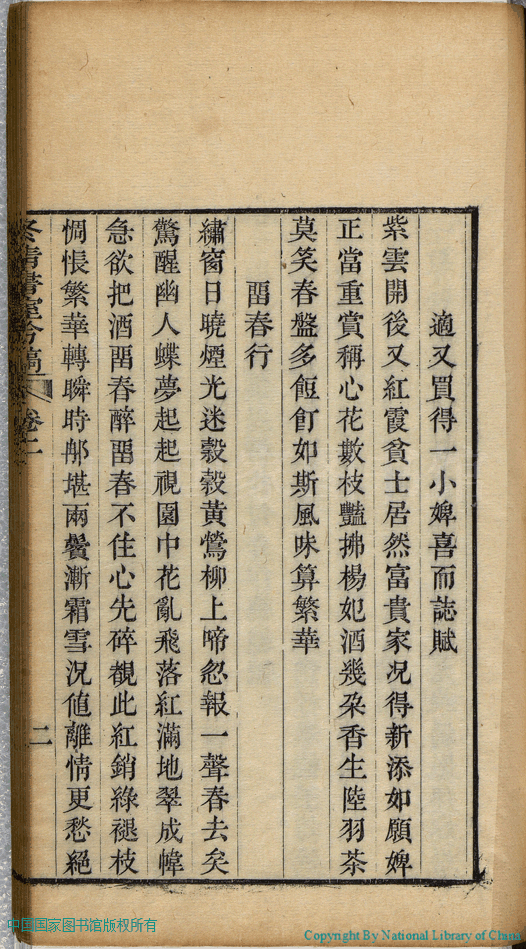 適又買得一小婢喜而誌賦
紫雲開後又紅霞貧士居然富貴家况得新添如願婢
正當重賞稱心花數枝豔拂楊妃酒幾朶香生陸羽茶
莫笑春盤多飣餖如斯風味算繁華
畱春行
繡窗日曉煙光迷縠縠黃鶯柳上啼忽報一聲春去矣
驚醒幽人蝶夢起起視園中花亂飛落紅滿地翠成幃
急欲把酒畱春醉畱春不住心先碎覩此紅銷綠褪枝
惆悵繁華轉瞬時那堪兩鬢漸霜雪况值離情更愁絕
書室吟稿 卷二
二
中国国家图书馆版权所有
Copyright By National Library of China